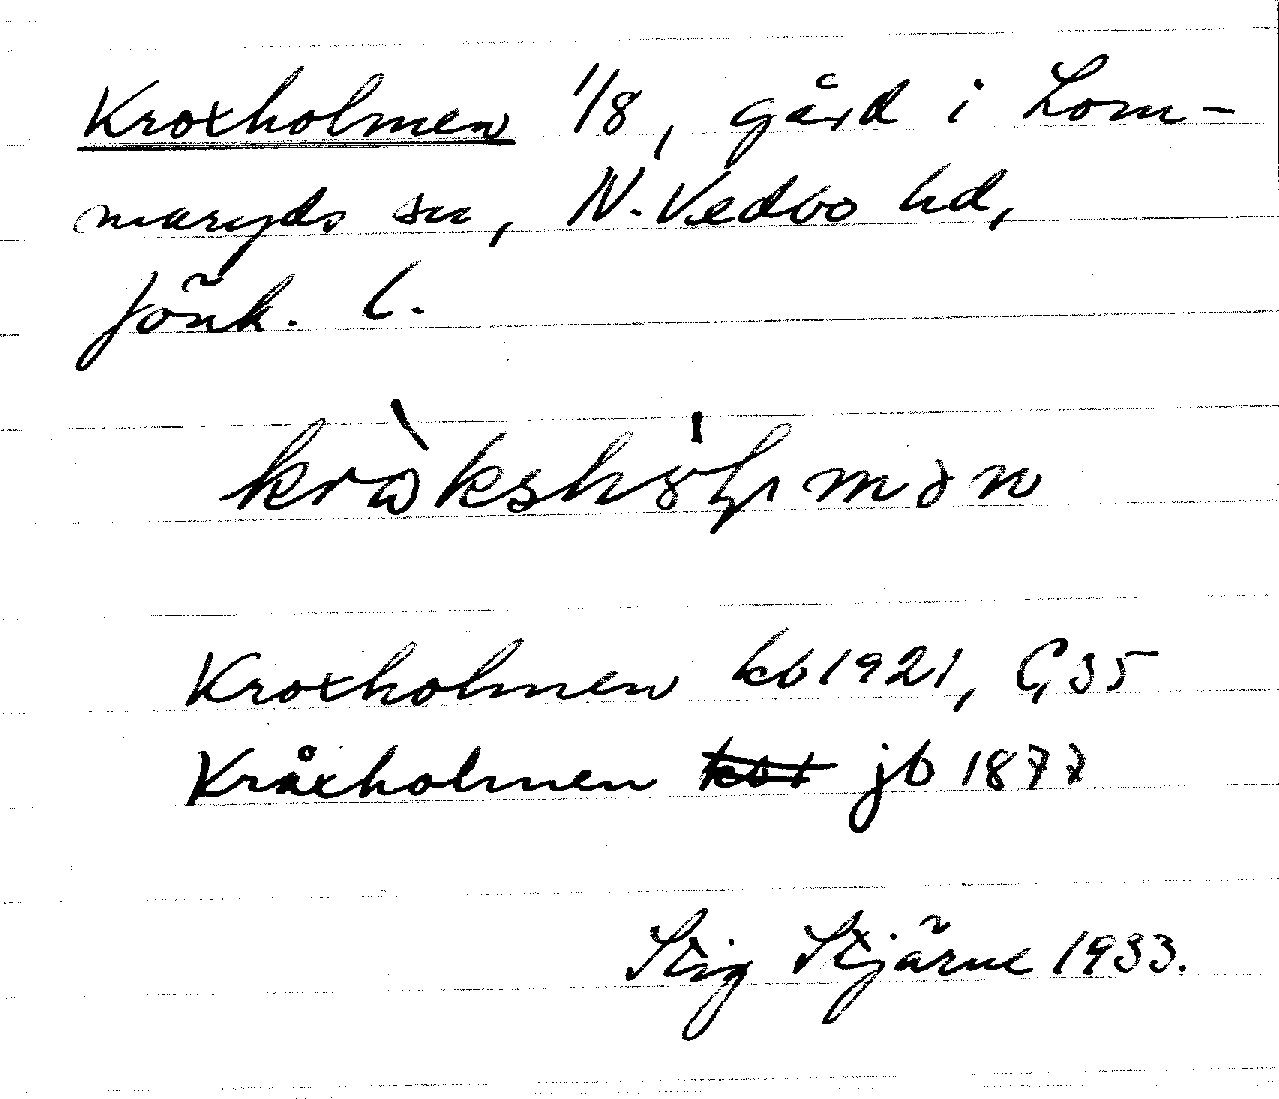 Kroxholmen 1/8, gård i Lom-
maryds sn, N. Vedbo hd,
Jönk. l.
Kroxholmen kb 1921, C,35
Kråxholmen jb 1877
Stig Stjärne 1933.